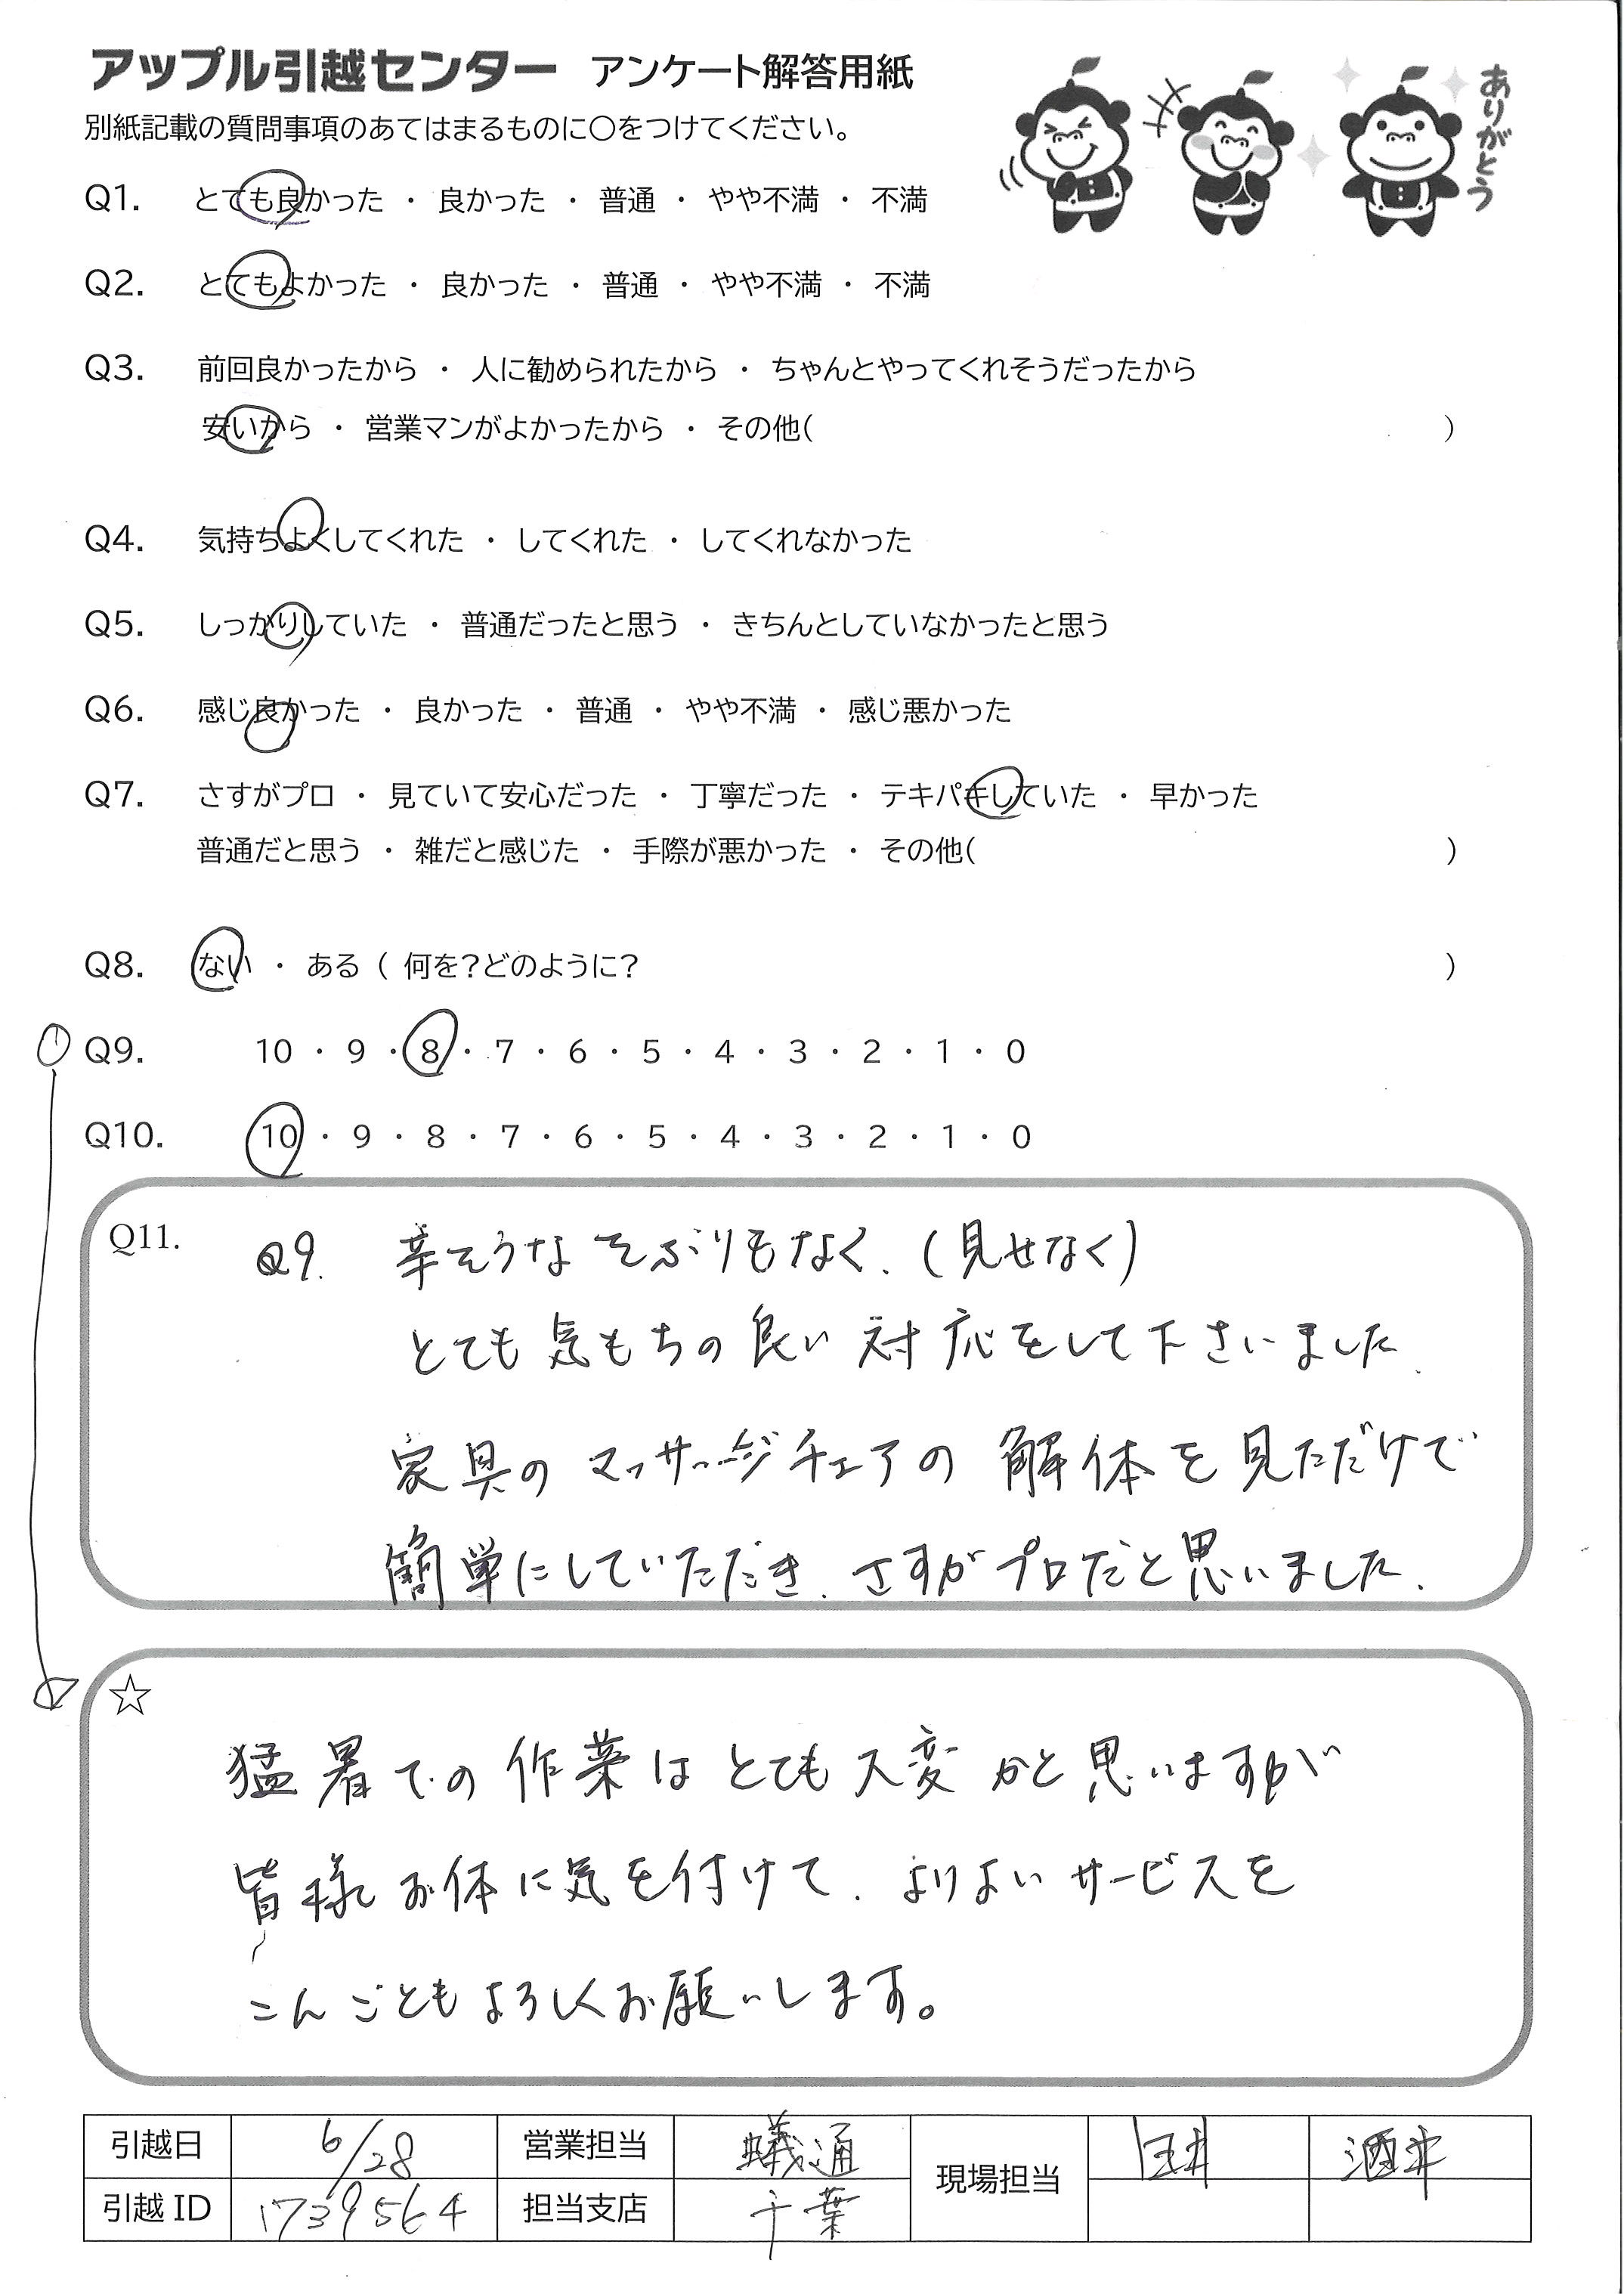 アップル引越センター アンケート解答用紙
別紙記載の質問事項のあてはまるものに○をつけてください。
ありがとう
Q1. とても良かった ・ 良かった ・ 普通 ・ やや不満 ・ 不満
Q2. とてもよかった ・ 良かった ・ 普通 ・ やや不満 ・ 不満
Q3. 前回良かったから ・ 人に勧められたから ・ ちゃんとやってくれそうだったから
安いから ・ 営業マンがよかったから ・ その他( )
Q4. 気持ちよくしてくれた ・ してくれた ・ してくれなかった
Q5. しっかりしていた ・ 普通だったと思う ・ きちんとしていなかったと思う
Q6. 感じ良かった ・ 良かった ・ 普通 ・ やや不満 ・ 感じ悪かった
Q7. さすがプロ ・ 見ていて安心だった ・ 丁寧だった ・ テキパキしていた ・ 早かった
普通だと思う ・ 雑だと感じた ・ 手際が悪かった ・ その他( )
Q8. ない ・ ある ( 何を?どのように? )
Q9. 10 ・ 9 ・ 8 ・ 7 ・ 6 ・ 5 ・ 4 ・ 3 ・ 2 ・ 1 ・ 0
Q10. 10 ・ 9 ・ 8 ・ 7 ・ 6 ・ 5 ・ 4 ・ 3 ・ 2 ・ 1 ・ 0
Q11. Q9. 辛そうなそぶりもなく、(見せなく)
とても気もちの良い対応をして下さいました.
家具のマッサージチェアの解体を見ただけで
簡単にしていただき、さすがプロだと思いました.
☆
猛暑での作業はとても大変かと思いますが
皆様お体に気を付けて、よりよいサービスを
こんごともよろしくお願いします。
引越日 6/28 営業担当 蟻通 現場担当 酒井
引越 ID 1739564 担当支店 千葉